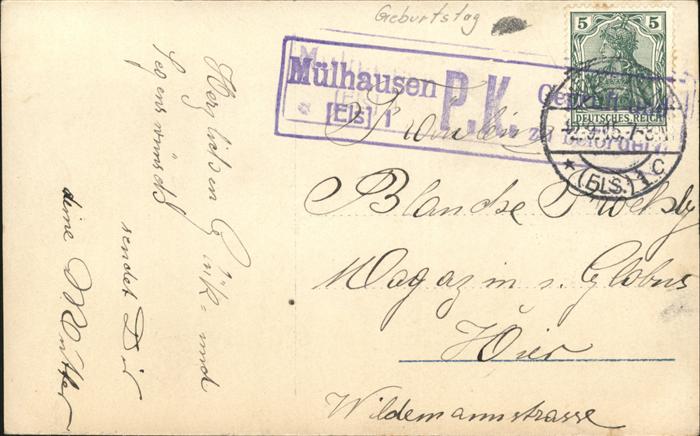 Geburtstag
5 5
DEUTSCHES REICH
Mülhausen
[Els] 1
P.K.
Geprüft und
zu befördern.
(ELS.) 1 C
Fräulein
Blanche
Magazin z. Globus
Hier
Wildemannstrasse
Herzlichen Glück- und
Segenswunsch
sendet Dir
deine Mutter